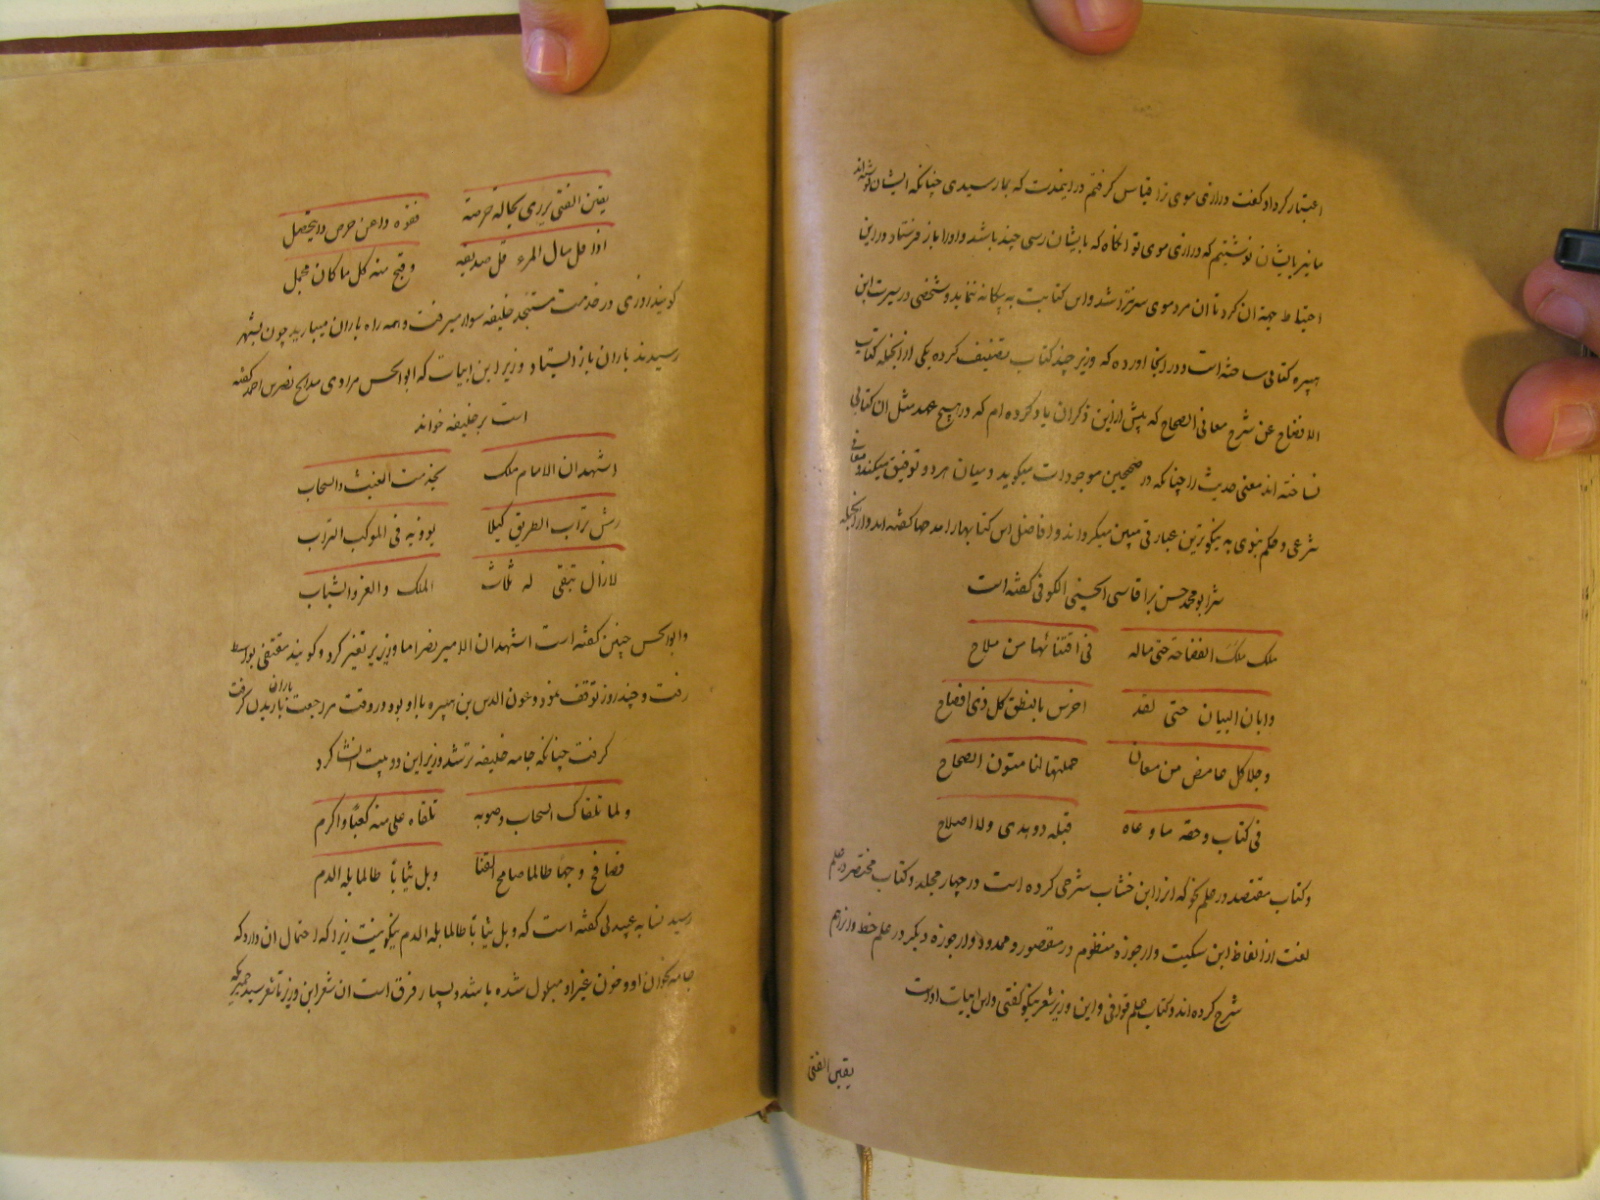 اعتبار کرد او گفت و درازی موی ترا قیاس کرفتم در اینمدت که بما رسیدی چنانکه ایشان نوشته اند
ما نیز بایشان نوشتیم که درازی موی تو انکاه که بایشان رسی چند باشد و او را باز فرستاد و در این
احتیاط جهة ان کرد تا ان مرد موی سر نتراشد و این کتابت به بیکانه ننماید و شخصی در سیرت ابن
هبیره کتابی ساخته است و در انجا اورده که وزیر چند کتاب تصنیف کرده یکی از انجمله کتاب
الافصاح عن شرح معانی الصحاح که پیش از این ذکر ان یاد کرده ام که در هیچ عهد مثل ان کتابی
نساخته اند معنی حدیث را چنانکه در صحیحین موجود است میکوید و میان هر دو توفیق میکند و معانی
شرعی و حکم نبوی به نیکوترین عبارتی مبین میکرداند و افاضل این کتاب را مدحها کفته اند و از انجمله
ابو محمد حسن الحسینی الکوفی کفته است
ملک ملک الفصاحة حتی ماله
فی اقتنائها من ملاح
وابان البیان حتی لقد
اخرس بالنطق کل ذی افصاح
وجلا کل غامض من معان
حملتها لنا متون الصحاح
فی کتاب وحقه ما وعاه
قبله ذو هدی ولا اصلاح
و کتاب مقتصد در علم نحو که انرا ابن خشاب شرحی کرده است در چهار مجلد و کتاب مختصر در علم
لغت از الفاظ ابن سکیت و ارجوزه منظوم در مقصور و ممدود و ارجوزه دیکر در علم خط و انرا هم
شرح کرده اند و کتاب علم قوافی و این وزیر شعر نیکو کفتی و این ابیات اوراست
یقین الفتی
یقین الفتی یزری بحالة حرصه
فقوة ذا عن حرص ذا یتحصل
اذا قل مال المرء قل صدیقه
وقبح منه کل ما کان یجمل
کویند روزی در خدمت مستنجد خلیفه سوار میرفت و همه راه باران میبارید چون بشهر
رسیدند باران باز ایستاد وزیر این ابیات که ابو الحسن مرادی مدایح نصر بن احمد کفته
است بر خلیفه خواند
اشهد ان الامام ملک
یخدمه الغیث والسحاب
رش تراب الطریق کیلا
یوذیه فی الموکب التراب
لا زال تبقی له ثلث
الملک والعز والشباب
و ابو الحسن چنین کفته است اشهد ان الامیر نصر اما وزیر تغیر کرد و کویند مقتفی بواسط
رفت و چند روز توقف نمود و عون الدین بن هبیره با او بود و در وقت مراجعت باران باریدن کرفت
کرفت چنانکه جامه خلیفه تر شد وزیر این دو بیت انشا کرد
ولما تلقاک السحاب وصوبه
تلقاه علی منه کعبا واکرم
فصافح وجها طالما صافح القنا
وبل ثیابا طالما بله الدم
رسید نسابه عبیدلی کفته است که وبل ثیابا طالما بله الدم نیکو نیست زیرا که احتمال ان دارد که
جامه بخون او و خون غیر او مبلول شده باشد و بسیار فرق است ان شعر این وزیر تا شعر سید حمیری که